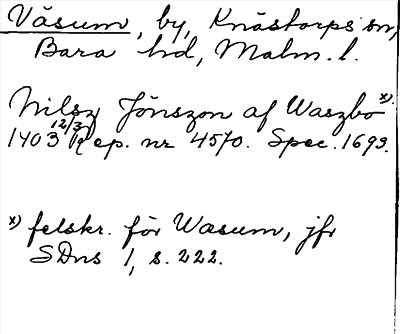 Väsum, by, Knästorps sn,
Bara hd, Malm. l.
Nilsz Jönszon af Waszbo x)
1403 12/3 Rep. nr 4570. Spec. 1693.
x) felskr. för Wasum, jfr
SDns 1, s. 222.